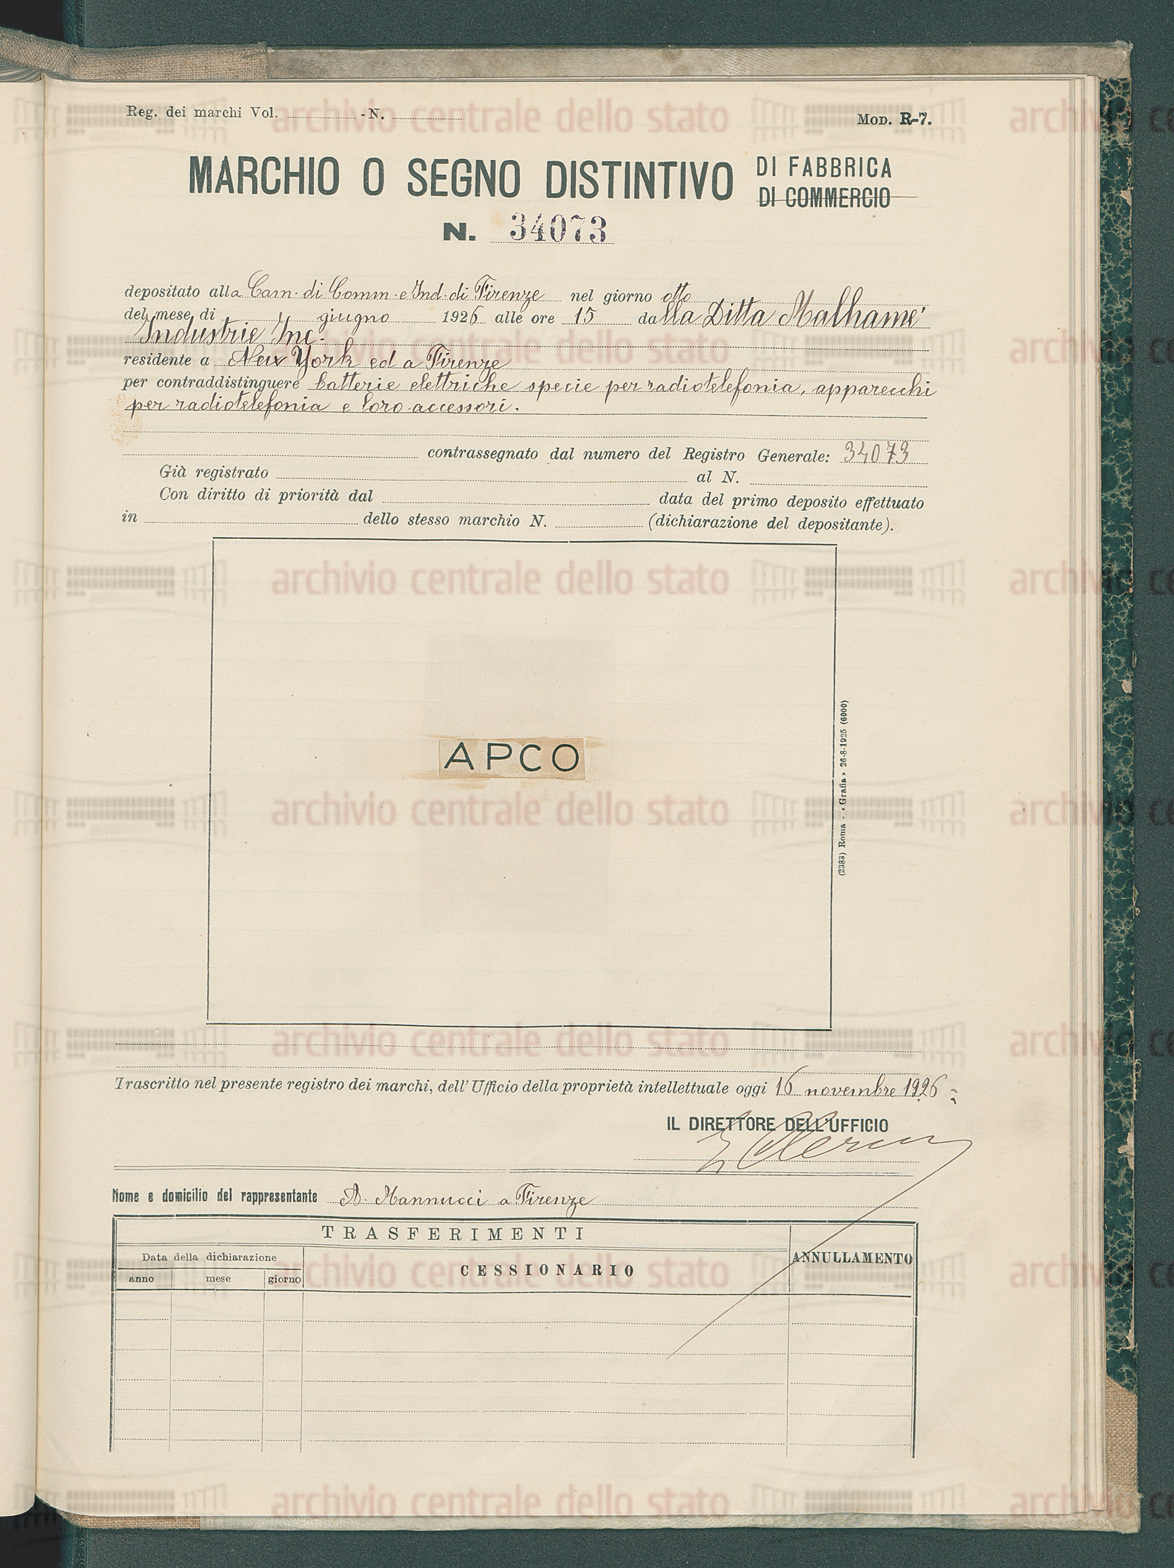 Reg. dei marchi Vol. - N.
Mod. R-7.
MARCHIO O SEGNO DISTINTIVO DI FABBRICA
DI COMMERCIO
N. 34073
depositato alla Cam. di Comm. e Ind. di Firenze nel giorno otto
del mese di giugno 1926 alle ore 15 dalla Ditta Malhamé
Industrie Inc.
residente a New York ed a Firenze
per contraddistinguere batterie elettriche specie per radiotelefonia, apparecchi
per radiotelefonia e loro accessori.
contrassegnato dal numero del Registro Generale: 34073
Già registrato al N.
Con diritto di priorità dal data del primo deposito effettuato
in dello stesso marchio N. (dichiarazione del depositante).
APCO
(2383) Roma - «Grafia» 26-8-1925 (6000)
Trascritto nel presente registro dei marchi, dell'Ufficio della proprietà intellettuale oggi 16 novembre 1926
IL DIRETTORE DELL'UFFICIO
Nome e domicilio del rappresentante A. Mannucci a Firenze
TRASFERIMENTI
Data della dichiarazione
anno mese giorno
CESSIONARIO
ANNULLAMENTO
archivio centrale dello stato